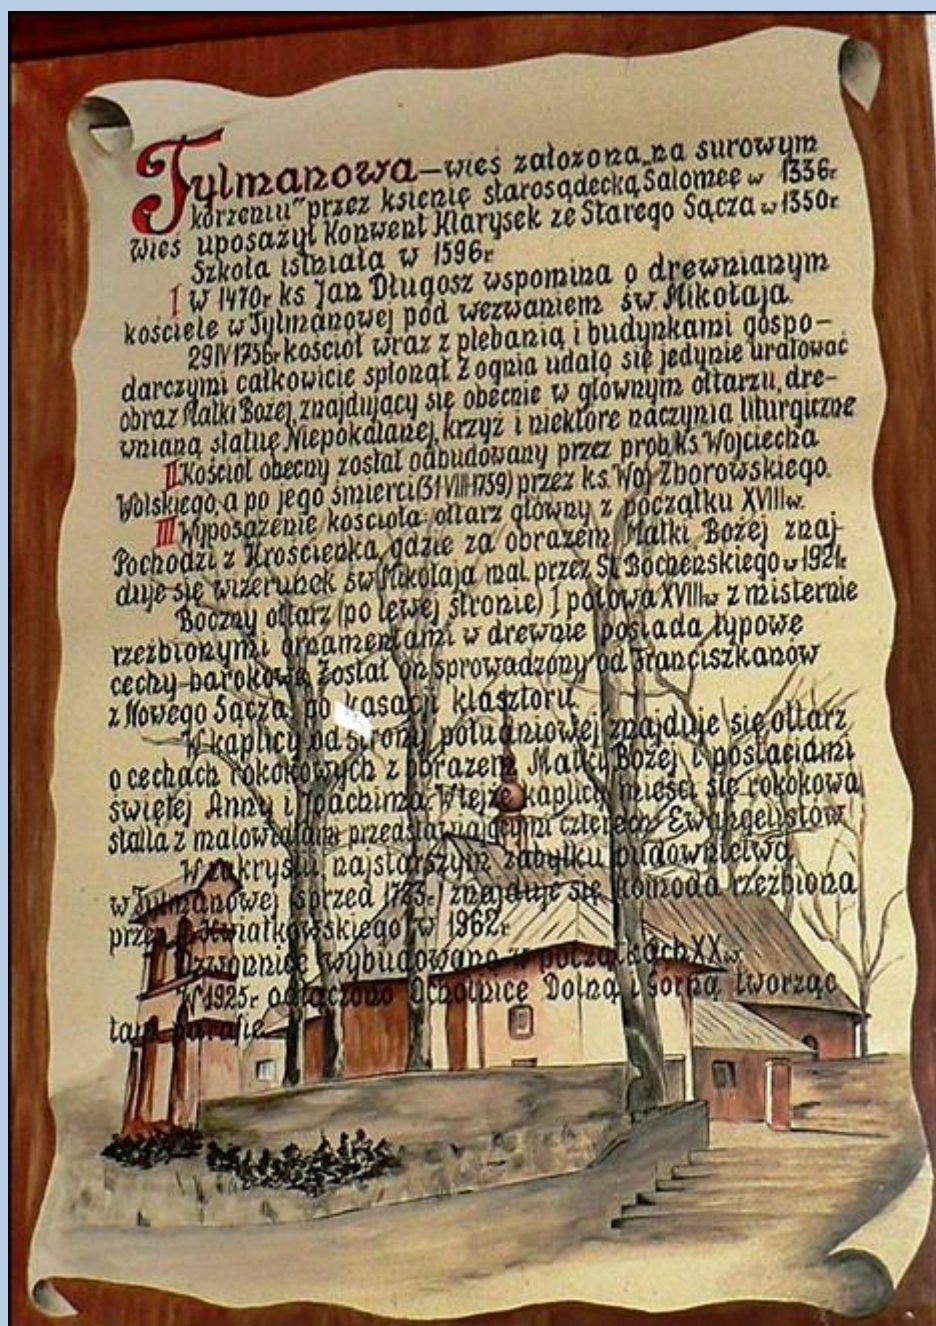 Tylmanowa – wieś założona „na surowym
korzeniu" przez ksienię starosądecką Salomeę w 1336r
wieś uposażył Konwent Klarysek ze Starego Sącza w 1350r
Szkoła istniała w 1596r
I W 1470r ks Jan Długosz wspomina o drewnianym
kościele w Tylmanowej pod wezwaniem św. Mikołaja.
29 IV 1756r kościół wraz z plebanią i budynkami gospo–
darczymi całkowicie spłonął. Z ognia udało się jedynie uratować
obraz Matki Bożej, znajdujący się obecnie w głównym ołtarzu, dre–
wnianą statuę Niepokalanej, krzyż i niektóre naczynia liturgiczne
II Kościół obecny został odbudowany przez prob. ks. Wojciecha
Wolskiego, a po jego śmierci (31 VIII 1759) przez ks. Woj. Zborowskiego.
III Wyposażenie kościoła: ołtarz główny z początku XVIII w.
Pochodzi z Krościenka, gdzie za obrazem Matki Bożej znaj–
duje się wizerunek św. Mikołaja mal. przez St. Bocheńskiego w 1921r
Boczny ołtarz (po lewej stronie) I połowa XVIII w z misternie
rzeźbionymi ornamentami w drewnie posiada typowe
cechy barokowe. Został on sprowadzony od Franciszkanów
z Nowego Sącza, po kasacji klasztoru.
W kaplicy od strony południowej znajduje się ołtarz
o cechach rokokowych z obrazem Matki Bożej i postaciami
świętej Anny i Joachima. W tejże kaplicy mieści się rokokowa
stalla z malowidłami przedstawiającymi czterech Ewangelistów
W zakrystii, najstarszym zabytku budownictwa
w Tylmanowej sprzed znajduje się komoda rzeźbiona
przez Kwiatkowskiego w 1962r
Dzwonnicę wybudowano w początkach XX w.
W 1925r odłączono Ochotnicę Dolną i Górną tworząc
tam parafię